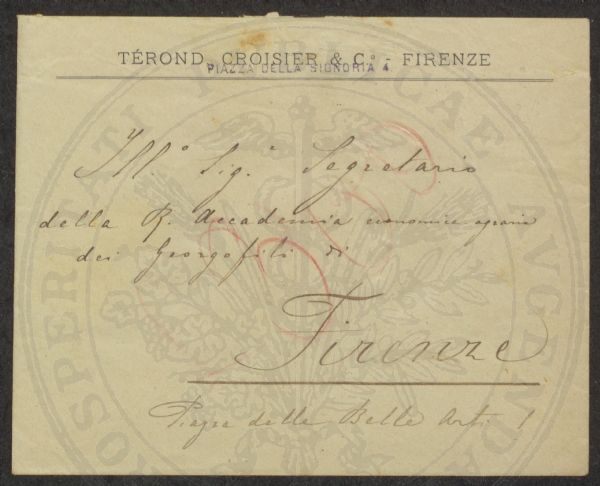 TÉROND, CROISIER & C.º - FIRENZE
PIAZZA DELLA SIGNORIA 4
Ill.º Sig.r Segretario
della R. Accademia economico agraria
dei Georgofili di
Firenze
Piazza delle Belle Arti 1
PROSPERITATI PUBLICAE AUGENDAE